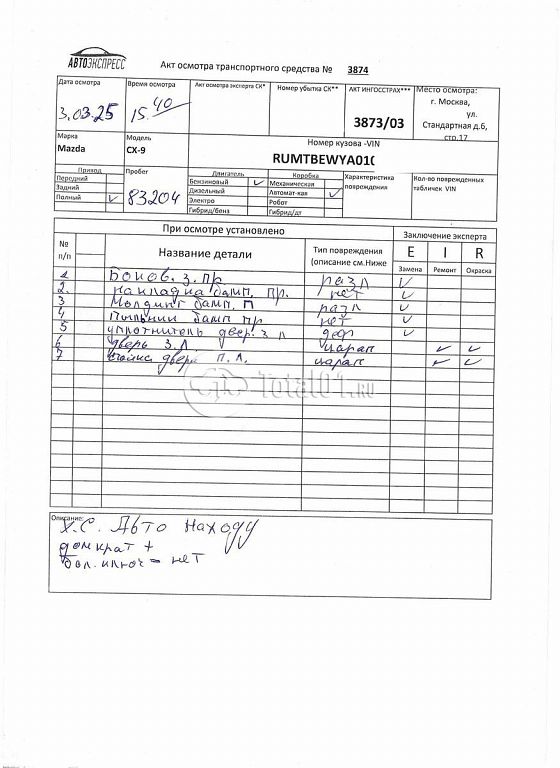 АВТОЭКСПРЕСС
Акт осмотра транспортного средства № 3874
Дата осмотра Время осмотра Акт осмотра эксперта СК* Номер убытка СК** АКТ ИНГОССТРАХ*** Место осмотра:
3.03.25 15.40 3873/03 г. Москва,
ул.
Стандартная д.6,
стр.17
Марка Модель Номер кузова -VIN
Mazda CX-9 RUMTBEWYA01(
Привод Пробег Двигатель Коробка Характеристика повреждения Кол-во поврежденных табличек VIN
Передний Бензиновый ✓ Механическая
Задний 83204 Дизельный Автомат-кая ✓
Полный ✓ Электро Робот
Гибрид/бенз Гибрид/дт
При осмотре установлено Заключение эксперта
№ п/п Название детали Тип повреждения (описание см.Ниже E I R
Замена Ремонт Окраска
1 Боков. з. пр разл ✓
2. накладка бамп. пр. нет ✓
3 Молдинг бамп. п разл ✓
4 Пыльник бамп пр нет ✓
5 уплотнитель двер. з л деф ✓
6 дверь з. л царап ✓ ✓
7 двери п. л. царап ✓ ✓
Total01.RU
Описание:
Х.С. Авто находу
домкрат +
бал. ключ = нет